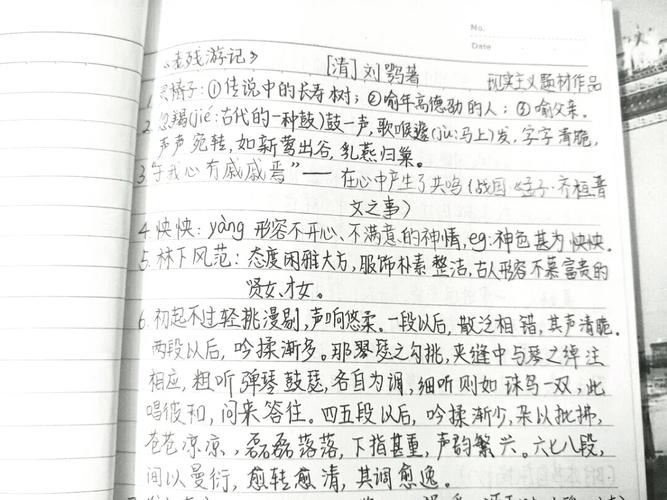 No.
Date
《老残游记》 [清]刘鹗著 现实主义题材作品
1. 灵椿子:①传说中的长寿树;②喻年高德劭的人;③喻父亲。
2. 忽羯(jié:古代的一种鼓)鼓一声,歌喉遽(jù:马上)发,字字清脆,
声声宛转,如新莺出谷,乳燕归巢。
3."于我心有戚戚焉"——在心中产生了共鸣(战国《孟子·齐桓晋
文之事》)
4.怏怏:yàng 形容不开心、不满意的神情,eg:神色甚为怏怏。
5.林下风范:态度闲雅大方,服饰朴素整洁,古人形容不慕富贵的
贤女、才女。
6.初起不过轻挑漫剔,声响悠柔。一段以后,散泛相错,其声清脆。
两段以后,吟揉渐多。那琴瑟之勾挑,夹缝中与琴之绰注
相应,粗听弹琴鼓瑟,各自为调,细听则如珠鸟一双,此
唱彼和,问来答往。四五段以后,吟揉渐少,杂以批拂,
苍苍凉凉,磊磊落落,下指甚重,声韵繁兴。六七八段,
间以曼衍,愈转愈清,其调愈逸。